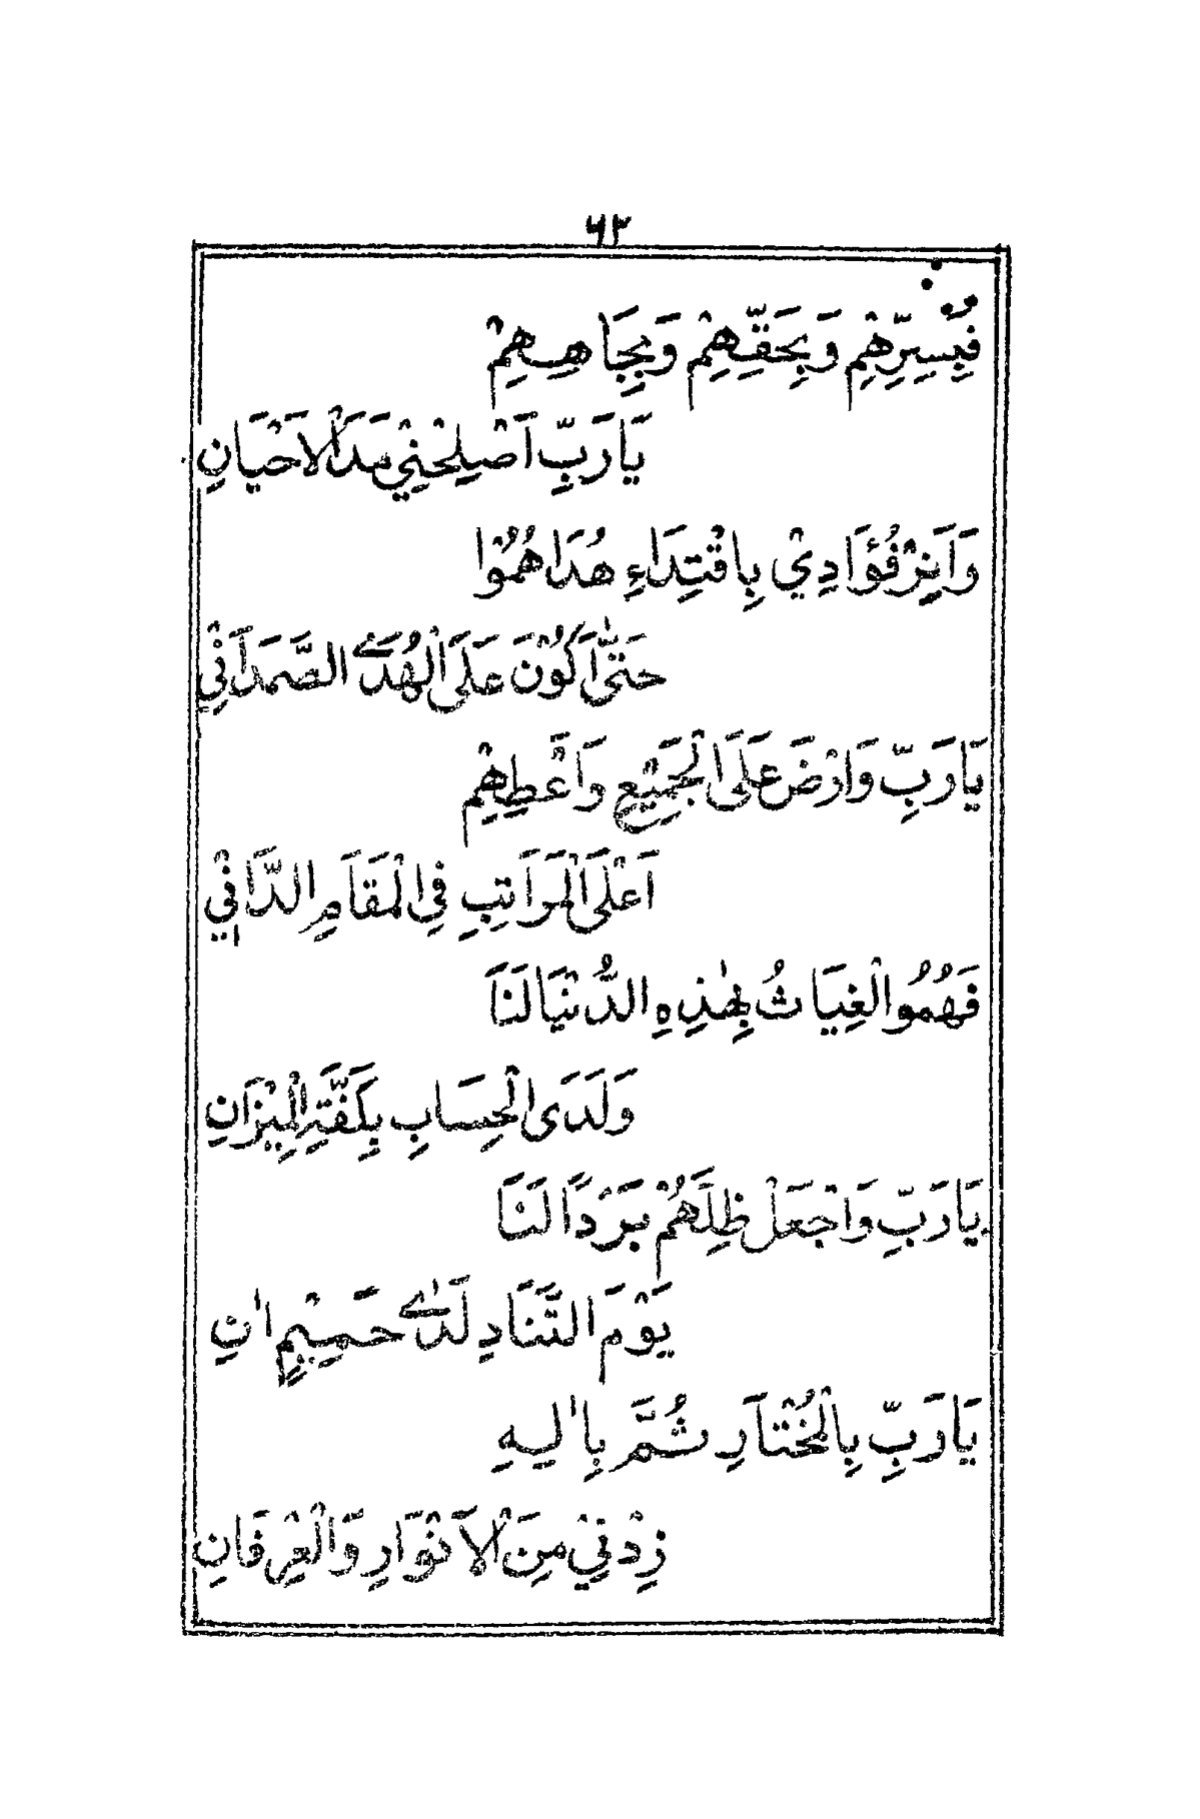 ٦٢
فَبِسِرِّهِمْ وَبِحَقِّهِمْ وَبِجَاهِهِمْ
يَارَبِّ اَصْلِحْنِيْ مَدَالْاَحْيَانِ
وَاَنِرْ فُؤَادِيْ بِاقْتِدَاءِ هُدَاهُمُوْا
حَتّٰى اَكُوْنَ عَلَى الْهُدَى الصَّمَدَانِيْ
يَارَبِّ وَارْضَ عَلَى الْجَمِيْعِ وَاَعْطِهِمْ
اَعْلَى الْمَرَاتِبِ فِى الْمَقَامِ الدَّانِيْ
فَهُمُو الْغِيَاثُ بِهٰذِهِ الدُّنْيَا لَنَا
وَلَدَى الْحِسَابِ بِكَفَّةِ الْمِيْزَانِ
يَارَبِّ وَاجْعَلْ ظِلَّهُمْ بَرْدًا لَنَا
يَوْمَ التَّنَادِ لَدٰى حَمِيْمٍ اٰنِ
يَارَبِّ بِالْمُخْتَارِ ثُمَّ بِاٰلِهِ
زِدْنِيْ مِنَ الْاَنْوَارِ وَالْعِرْفَانِ